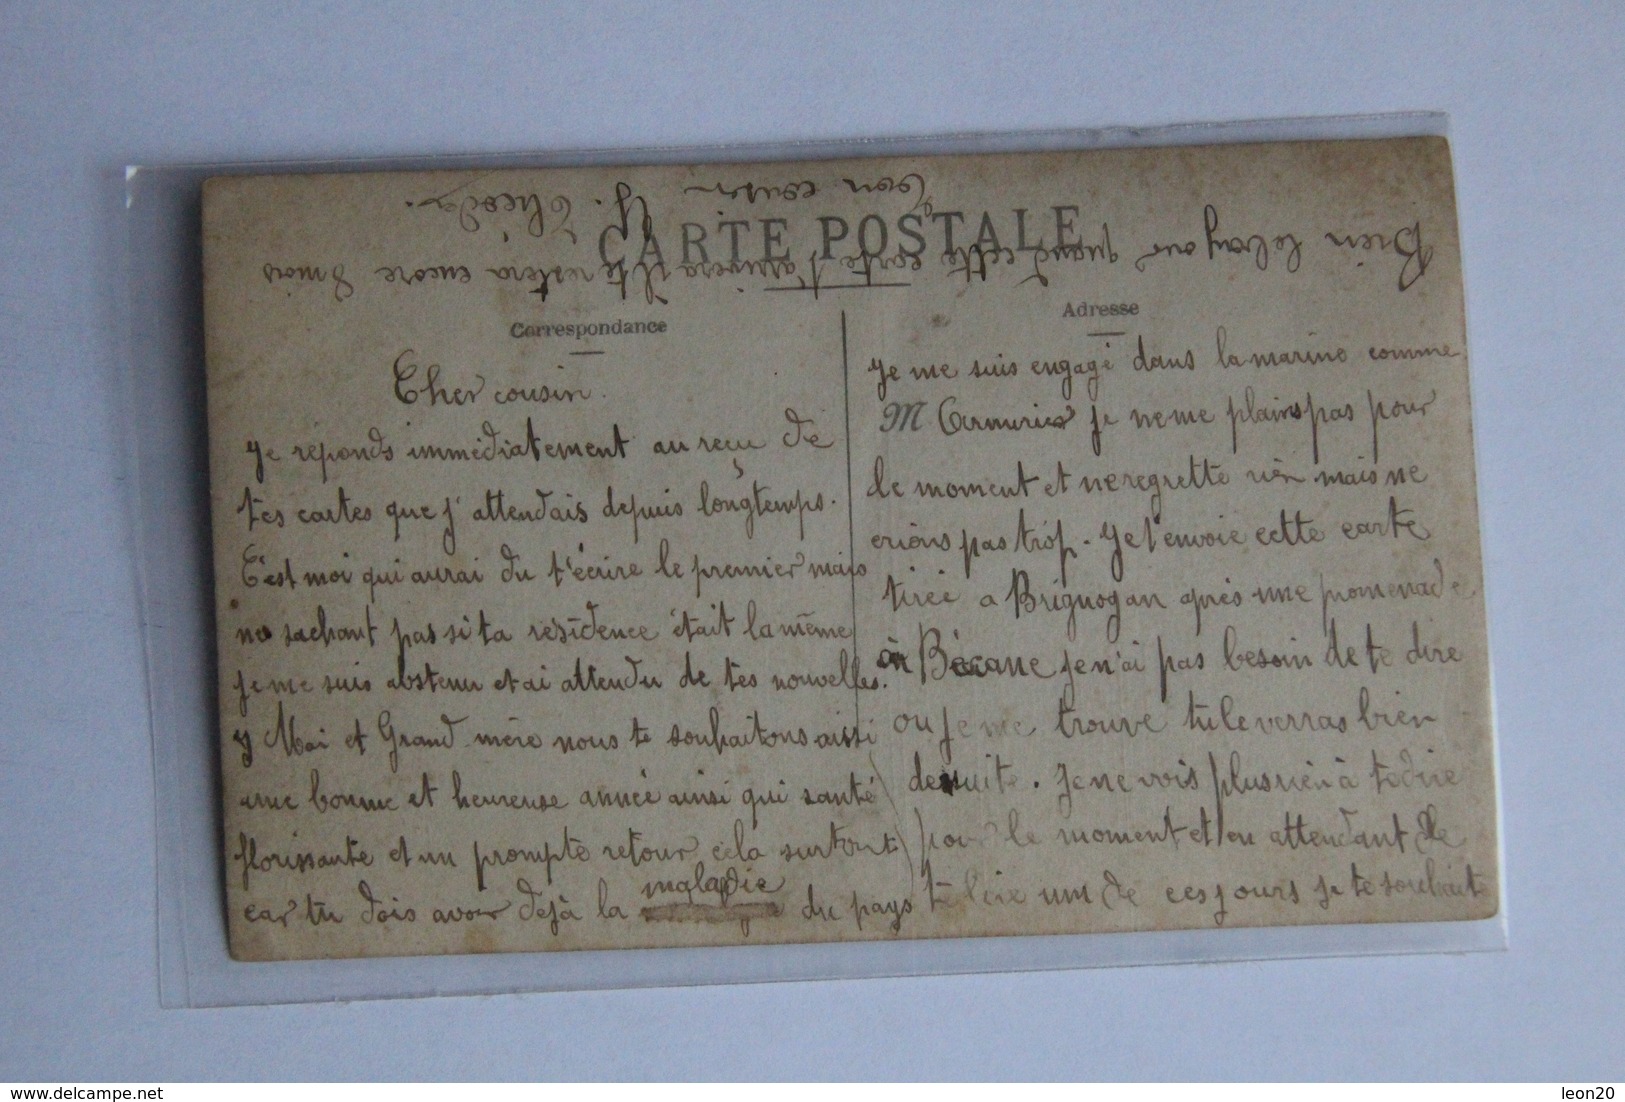 CARTE POSTALE
Correspondance
Cher cousin.
Je réponds immédiatement au reçu de
tes cartes que j'attendais depuis longtemps.
C'est moi qui aurai du t'écrire le premier mais
ne sachant pas si ta residence était la même
je me suis abstenu et ai attendu de tes nouvelles.
Moi et Grand mère nous te souhaitons aussi
une bonne et heureuse année ainsi qui santé
florissante et un prompte retour cela surtout
car tu dois avoir dejà la maladie du pays
Adresse
Je me suis engagé dans la marine comme
M je ne me plains pas pour
le moment et ne regrette rien mais ne
crions pas trop. Je t'envoie cette carte
tirée a Brignogan après une promenade
en Bécane je n'ai pas besoin de te dire
ou je me trouve tu le verras bien
de suite. Je ne vois plus rien à te dire
pour le moment et en attendant de
te lire un de ces jours je te souhaite
Bien le bonjour quand cette carte t'arrivera il te restera encore 8 mois
Ton cousin
leon20